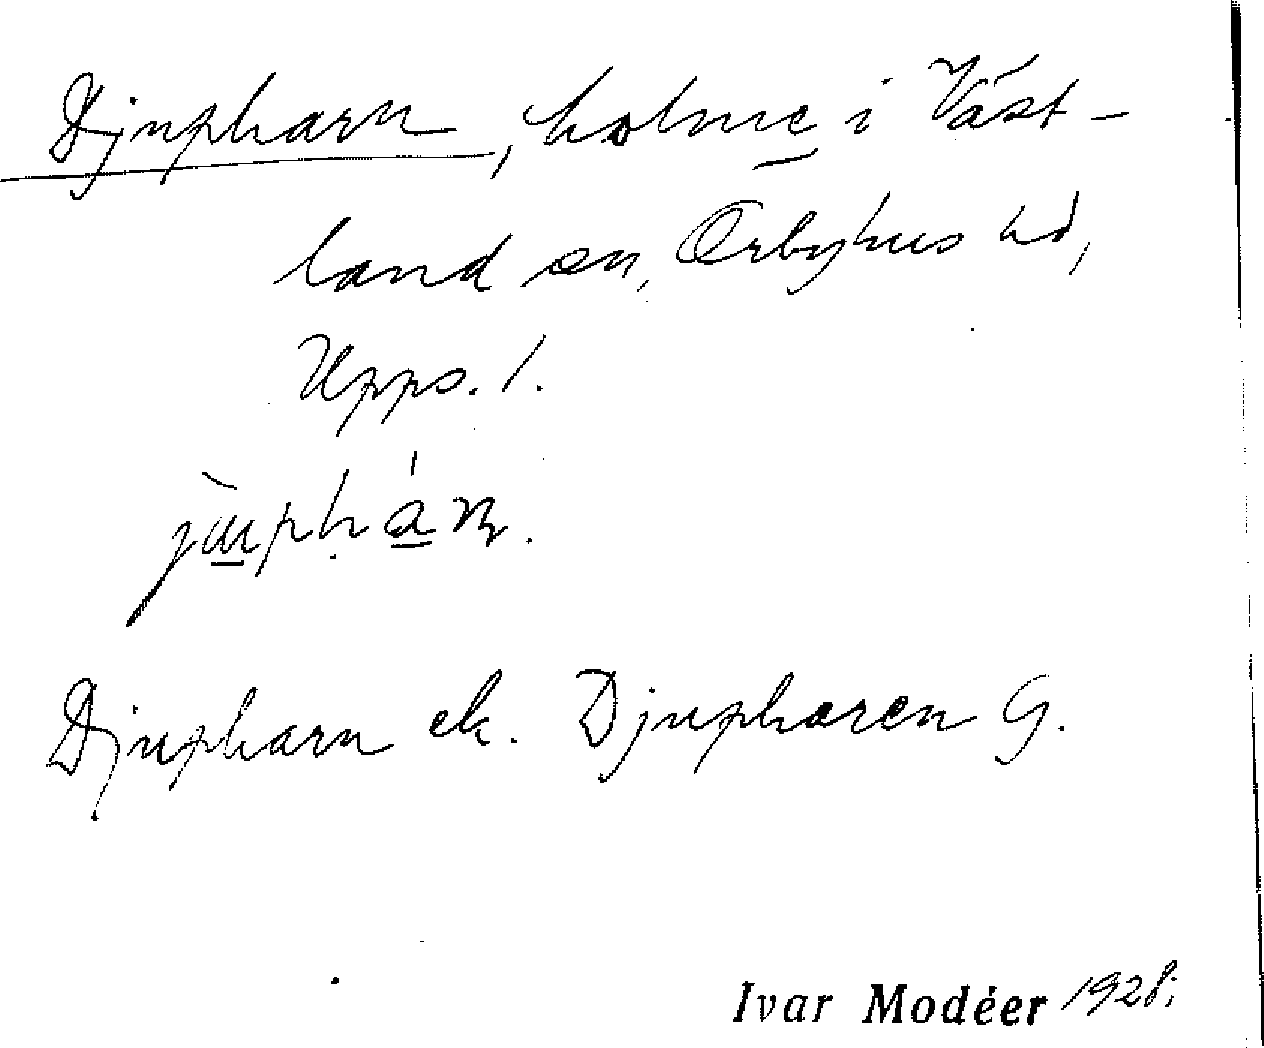 Djupharn, holme i Väst-
land sn, Örbyhus hd,
Upps. l.
Djupharn ek. Djupharen G.
Ivar Modéer 1928;